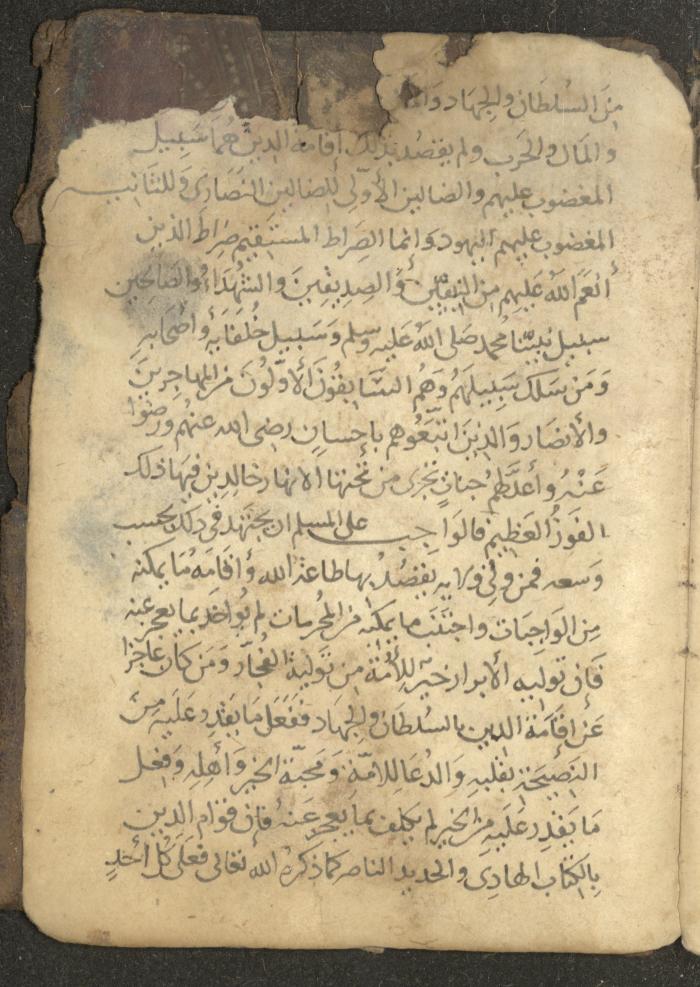 من السلطان والجهاد وا
والمال والحرب ولم يقصد بذلك اقامة الدين هما سبيل
المغضوب عليهم والضالين الأولى للضالين النصارى وللثانيه
المغضوب عليهم اليهود وانما الصراط المستقيم صراط الذين
أنعم الله عليهم من النبيّين والصديقين والشهداء والصالحين
سبيل نبيّنا محمد صلى الله عليه وسلم وسبيل خلفايه وأصحابه
ومن سلك سبيلهم وهم السابقون الأولون من المهاجرين
والانصار والذين اتبعوهم باحسان رضى الله عنهم ورضوا
عنه وأعد لهم جنات تجرى من تحتها الانهار خالدين فيها ذلك
الفوز العظيم فالواجب على المسلم ان يجتهد فى ذلك بحسب
وسعه فمن ولى ولايه يقصد بها طاعة الله واقامه ما يمكنه
من الواجبات واجتنب ما يمكنه من المحرمات لم يواخذ بما يعجز عنه
فان توليه الأبرار خير للأمّة من تولية الفجّار ومن كان عاجزا
عن اقامة الدين بالسلطان والجهاد ففعل ما يقدر عليه من
النصيحة بقلبه والدعا للامّة ومحبّة الخير وأهله وفعل
ما يقدر عليه من الخير لم يكلف بما يعجز عنه فان قوام الدين
بالكتاب الهادى والحديد الناصر كما ذكره الله تعالى فعلى كل أحد